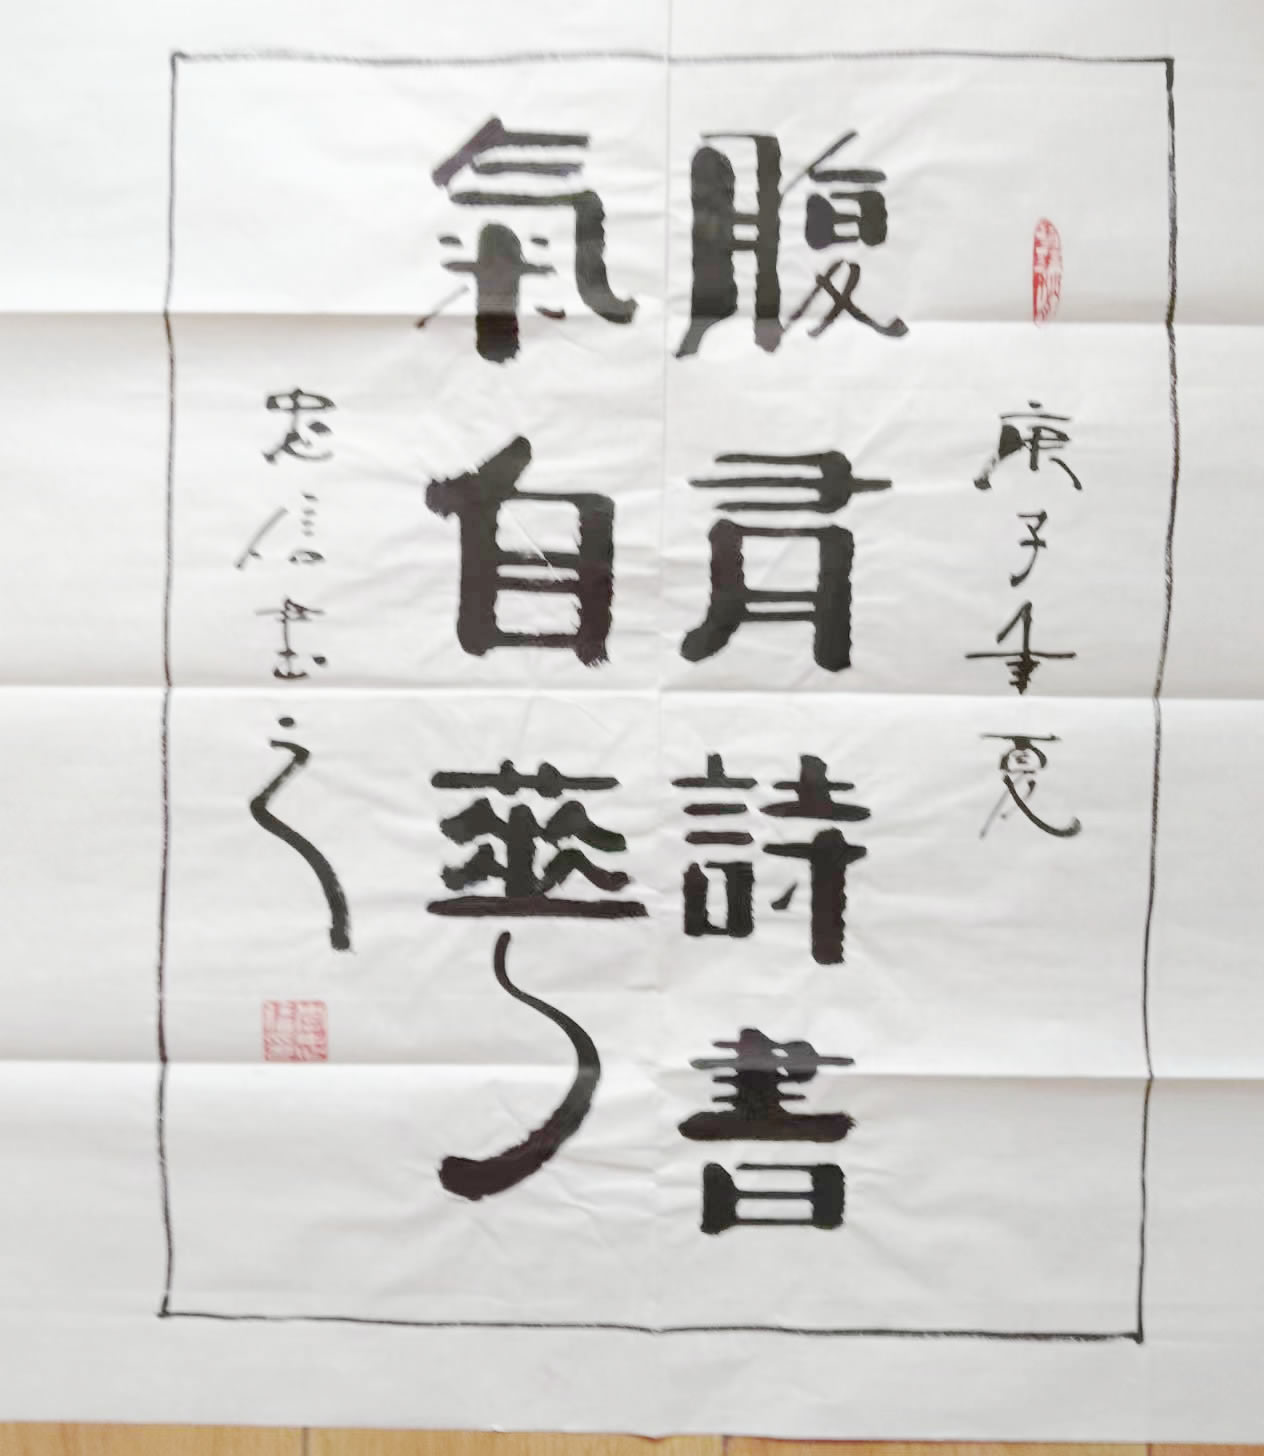 庚子年夏
腹有詩書
氣自華
忠信書之